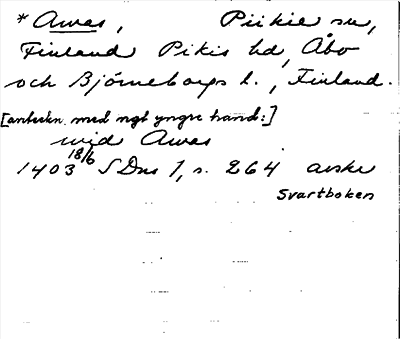 * Awas, Piikie sn,
Finland Pikis hd, Åbo
och Björneborgs l., Finland.
[anteckn. med ngt yngre hand:]
wid Awas
1403 18/6 SDns 1, s. 264 avskr
Svartboken